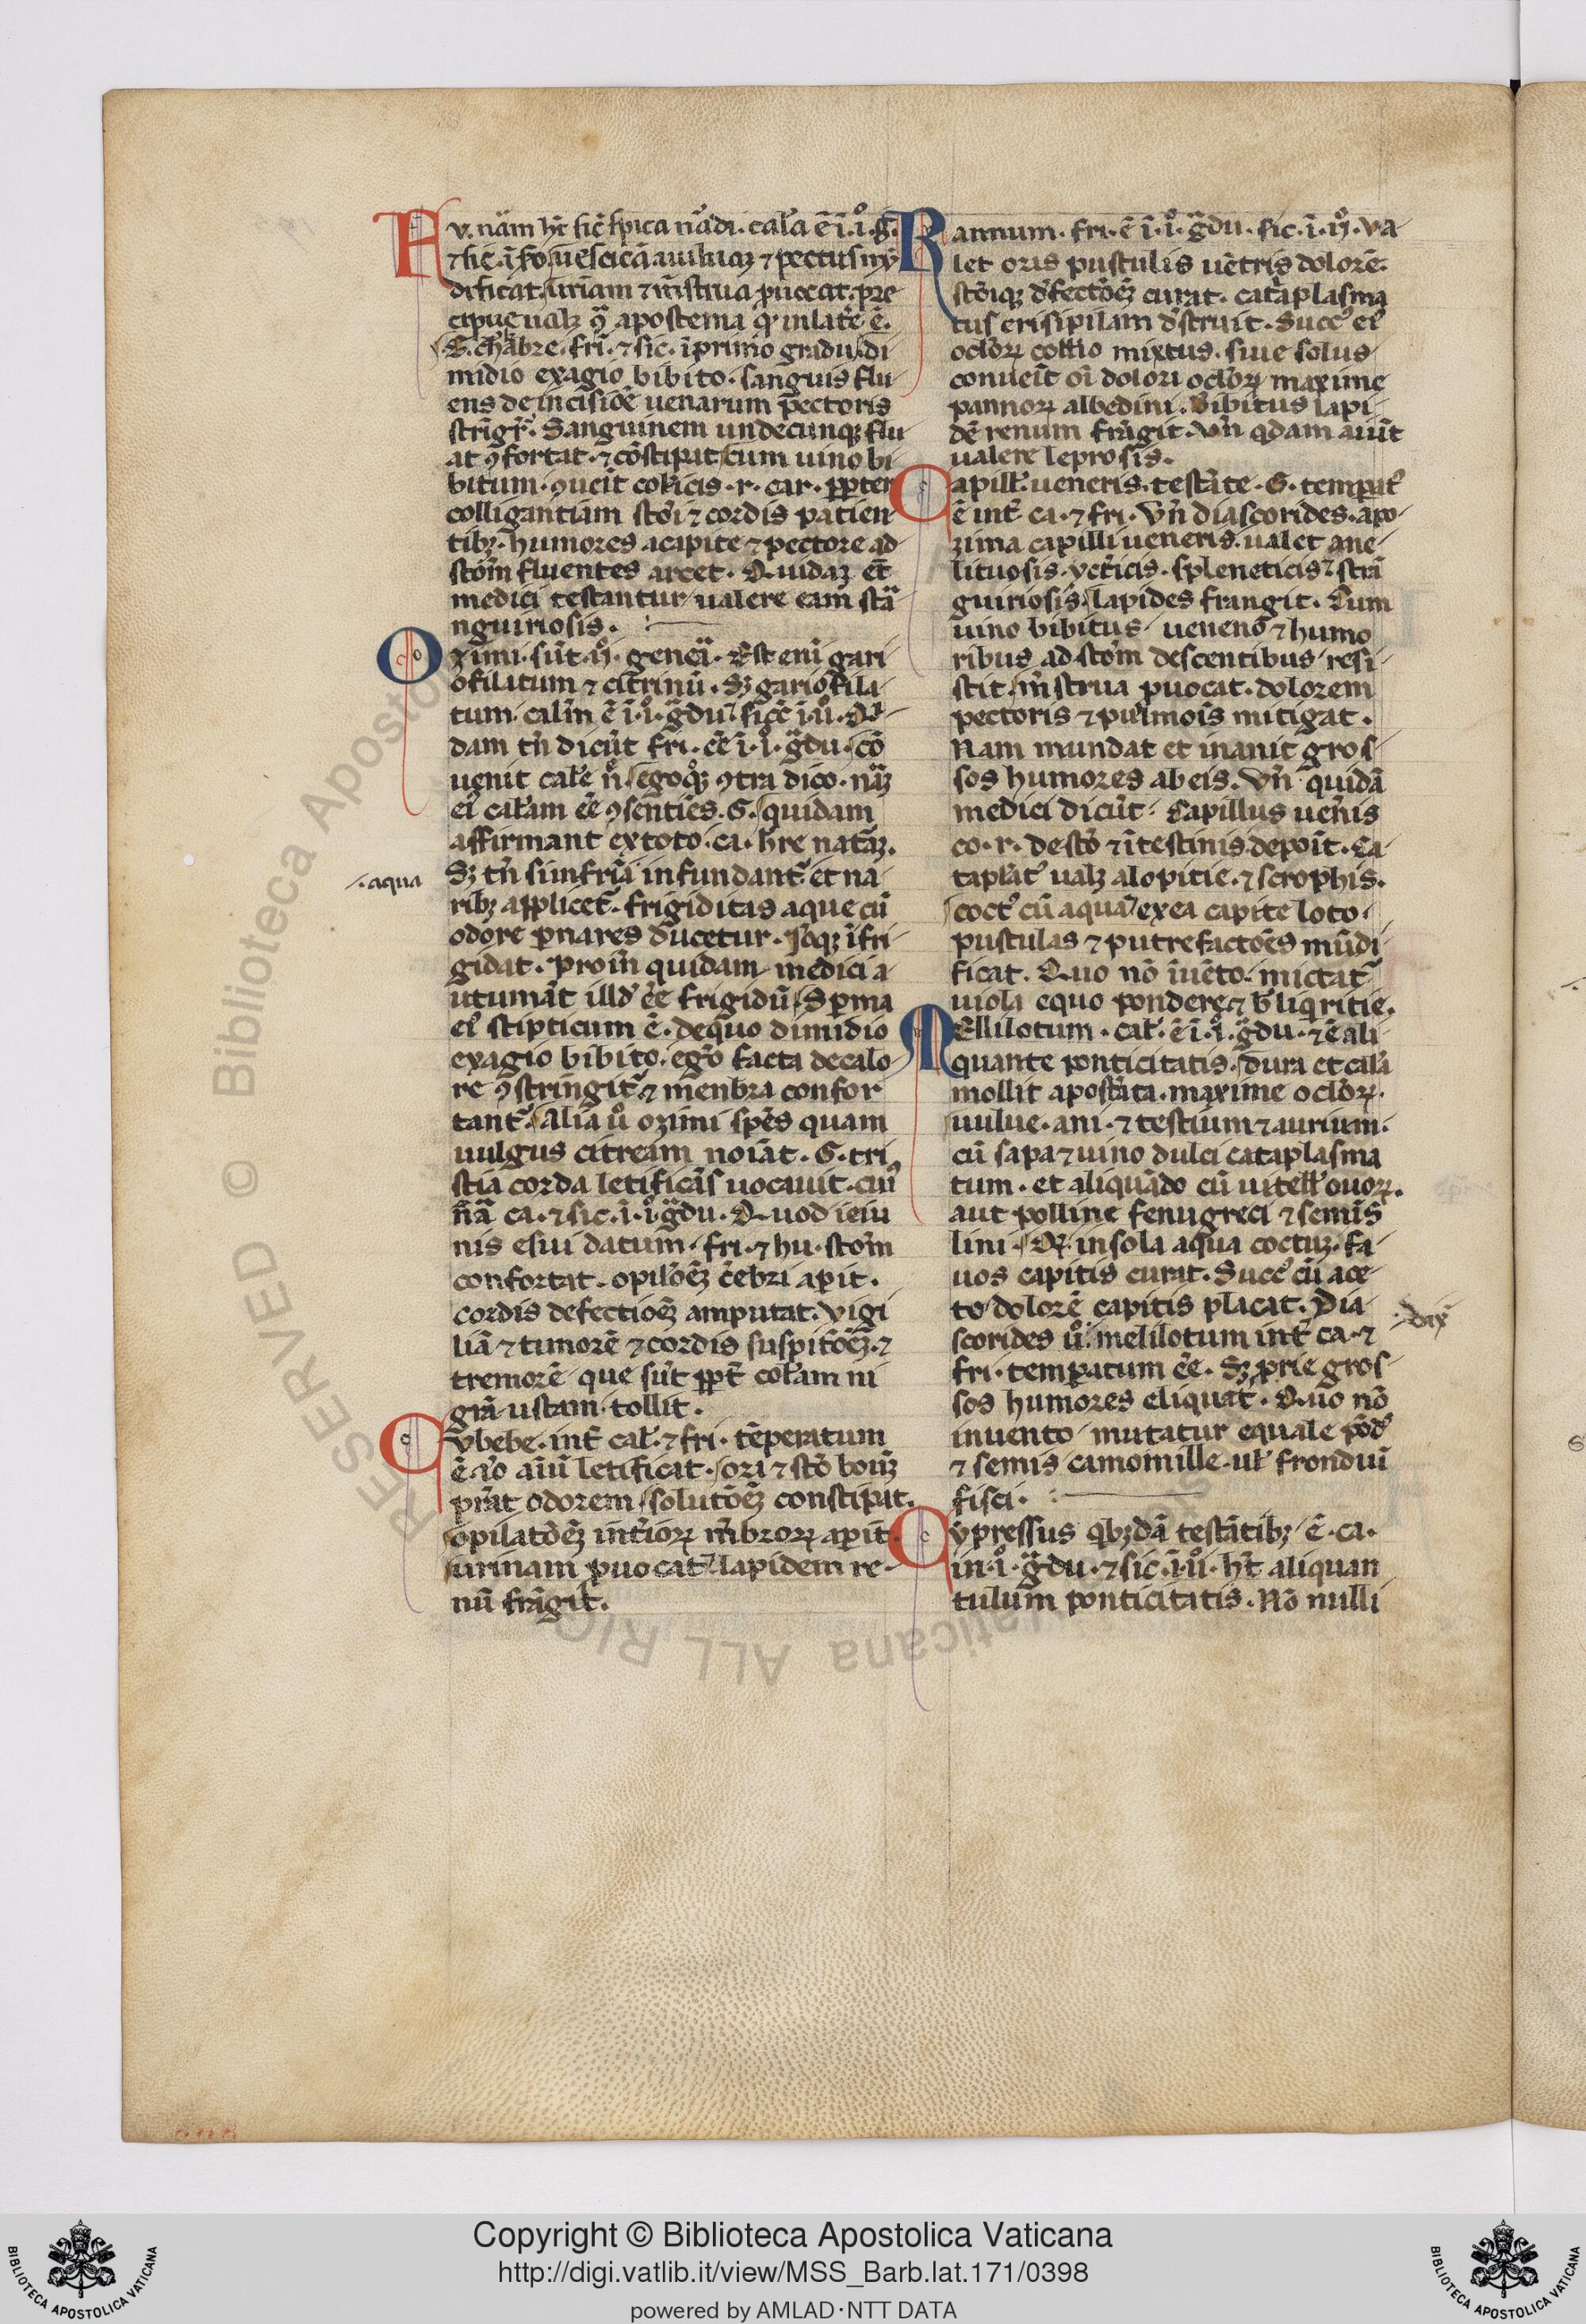 Fu. nãm hr̃ sic̃ spica nãdi. cala ẽ ĩ. i͛. g̃.
⁊ sic̃. ĩ fo uesicã ⁊ pectus mũ
dificat. urinam ⁊ mstrua puocat. pre
cipue ualꝫ ꝯ̃ apostema qͥ in late ẽ.
fri. ⁊ sic. ĩ primo gradu. di
midio exagio bibito. sanguis flu
ens de incisiõe uenarum pectoris
strĩgr̃. Sanguinem undecunqꝫ flu
at ꝯfortat. ⁊ cõstipat cum uino bi
bitum. ꝯueĩt colicis. r. car. ꝓpter
colligantiam stõi ⁊ cordis patien
tibꝫ. humores a capite ⁊ pectore ad
stõm fluentes arcet. Quidaꝫ et̃
medici testantur ualere eam strã
nguiriosis.
Ozimi. sũt. ij͛. genera. Est eni gari
ofilatum ⁊ citrinũ. Sꝫ gariofila
tum. calm̃ ẽ ĩ. i͛. g̃du ⁊ sicc̃ ĩ. ii͛. Qi
dam tñ dicũt fri. eẽ ĩ. i͛. g̃du. cõ
uenit cale n͛. ego qͦqꝫ ꝯtra dico. nãꝫ
ei͛ calam eẽ ꝯsenties. G. quidam
affirmant ex toto. ca. hre natãꝫ.
Sꝫ tñ si in friã infundant᷑ et na
ribꝫ applicet᷑. frigiditas aque cũ
odore ꝑ nares ducetur. ĩfri
gidat. Proin quidam medici a
utumãt illd͛ eẽ frigidũ. Sperma
ei͛ stipticum ẽ. de quo dimidio
exagio bibito. eg͛o facta de calo
re ꝯstringit᷑ ⁊ menbra confor
tant᷑. Alia u͛ ozimi spẽs quam
uulgus citream noĩat. G. tri
stia corda letificãs uocauit. cui͛
ñã ca. ⁊ sic. ĩ. i͛. g̃du. Quod ieiu
nis esui datum. fri. ⁊ hu. stõm
confortat. opilõeꝫ cẽbri aꝑit.
cordis defectioẽꝫ amputat. Vigi
liã ⁊ timorẽ ⁊ cordis suspitõeꝫ. ⁊
tremorẽ que sũt ꝓpt̃ colam ni
grã ustam. tollit.
Cubebe. int̃ cal. ⁊ fri. tẽperatum
ẽ. iõ aĩũ letificat. ori ⁊ stõ bonũ
prãt odorem. solutõeꝫ constipat.
opilatõeꝫ int̃ioꝝ mẽbroꝝ aꝑit.
urinam puocat. ⁊ lapidem re
nũ frãgit.
.aqua
Ramnum. fri. ẽ ĩ. i͛. g̃du. sic. ĩ. ij͛. va
let oris pustulis uẽtris dolorẽ.
stõiqꝫ defectõeꝫ curat. cataplasma
tus erisipilam destruit. Succ͛ ei͛
ocloꝝ collirio mixtus. siue solus
conueĩt oĩ dolori ocloꝝ maxime
pannoꝝ albedini. Bibitus lapi
dẽ renum frãgit. Vñ qdam aiũt
ualere leprosis.
Capilli ueneris. testãte. G. temꝑat͛
ẽ int̃ ca. ⁊ fri. Vñ diascorides. apo
zima capilli ueneris. ualet ane
lituosis. ycticis. spleneticis ⁊ strã
guiriosis. lapides frangit. Cum
uino bibitus. uenenõ ⁊ humo
ribus ad stõm descentibus resi
stit. mstrua puocat. dolorem
pectoris ⁊ pulmoĩs mitigat.
Nam mundat et inanit gros
sos humores ab eis. Vñ quidã
medici dicũt. Capillus uen̄is
co. r. de stõ ⁊ ĩtestinis depoĩt. Ca
taplat͛ ualꝫ alopitie. ⁊ scrophis.
coct͛ cũ aqua ⁊ ex ea capite loto
pustulas ⁊ putrefactõẽs mũdi
ficat. Quo nõ ĩuẽto. mictat᷑
uiola equo pondere. ⁊ liqritie.
Mellilotum. cal. ẽ ĩ. i͛. g̃du. ⁊ ẽ ali
quante ponticitatis. dura et cala
mollit apostãta. maxime ocloꝝ.
uulue. ani. ⁊ testium ⁊ aurium.
cũ sapa ⁊ uino dulci cataplasma
tum. et aliquãdo cũ uitell͛ ouoꝝ.
aut polline fenugreci ⁊ semĩs
lini. in sola aqua coctuꝫ. fa
uos capitis curat. Succ͛ cũ ace
to dolorẽ capitis placat. Dia
scorides u͛. melilotum int̃ ca. ⁊
fri. temꝑatum eẽ. Sꝫ ꝓprie gros
sos humores eliquat. Quo nõ
inuento mutatur equale põd͛
⁊ semis camomille. ul͛ frondiũ
fisci.
Cypressus qbꝫdã testãtibꝫ ẽ. ca.
in. i͛. g̃du. ⁊ sic. ĩ. ii͛. hr̃ aliquan
tulum ponticitatis. Nõ nulli
RESERVED © Biblioteca Apostolica Vaticana ALL RIG
Copyright © Biblioteca Apostolica Vaticana
http://digi.vatlib.it/view/MSS_Barb.lat.171/0398
powered by AMLAD·NTT DATA
BIBLIOTECA APOSTOLICA VATICANA
BIBLIOTECA APOSTOLICA VATICANA